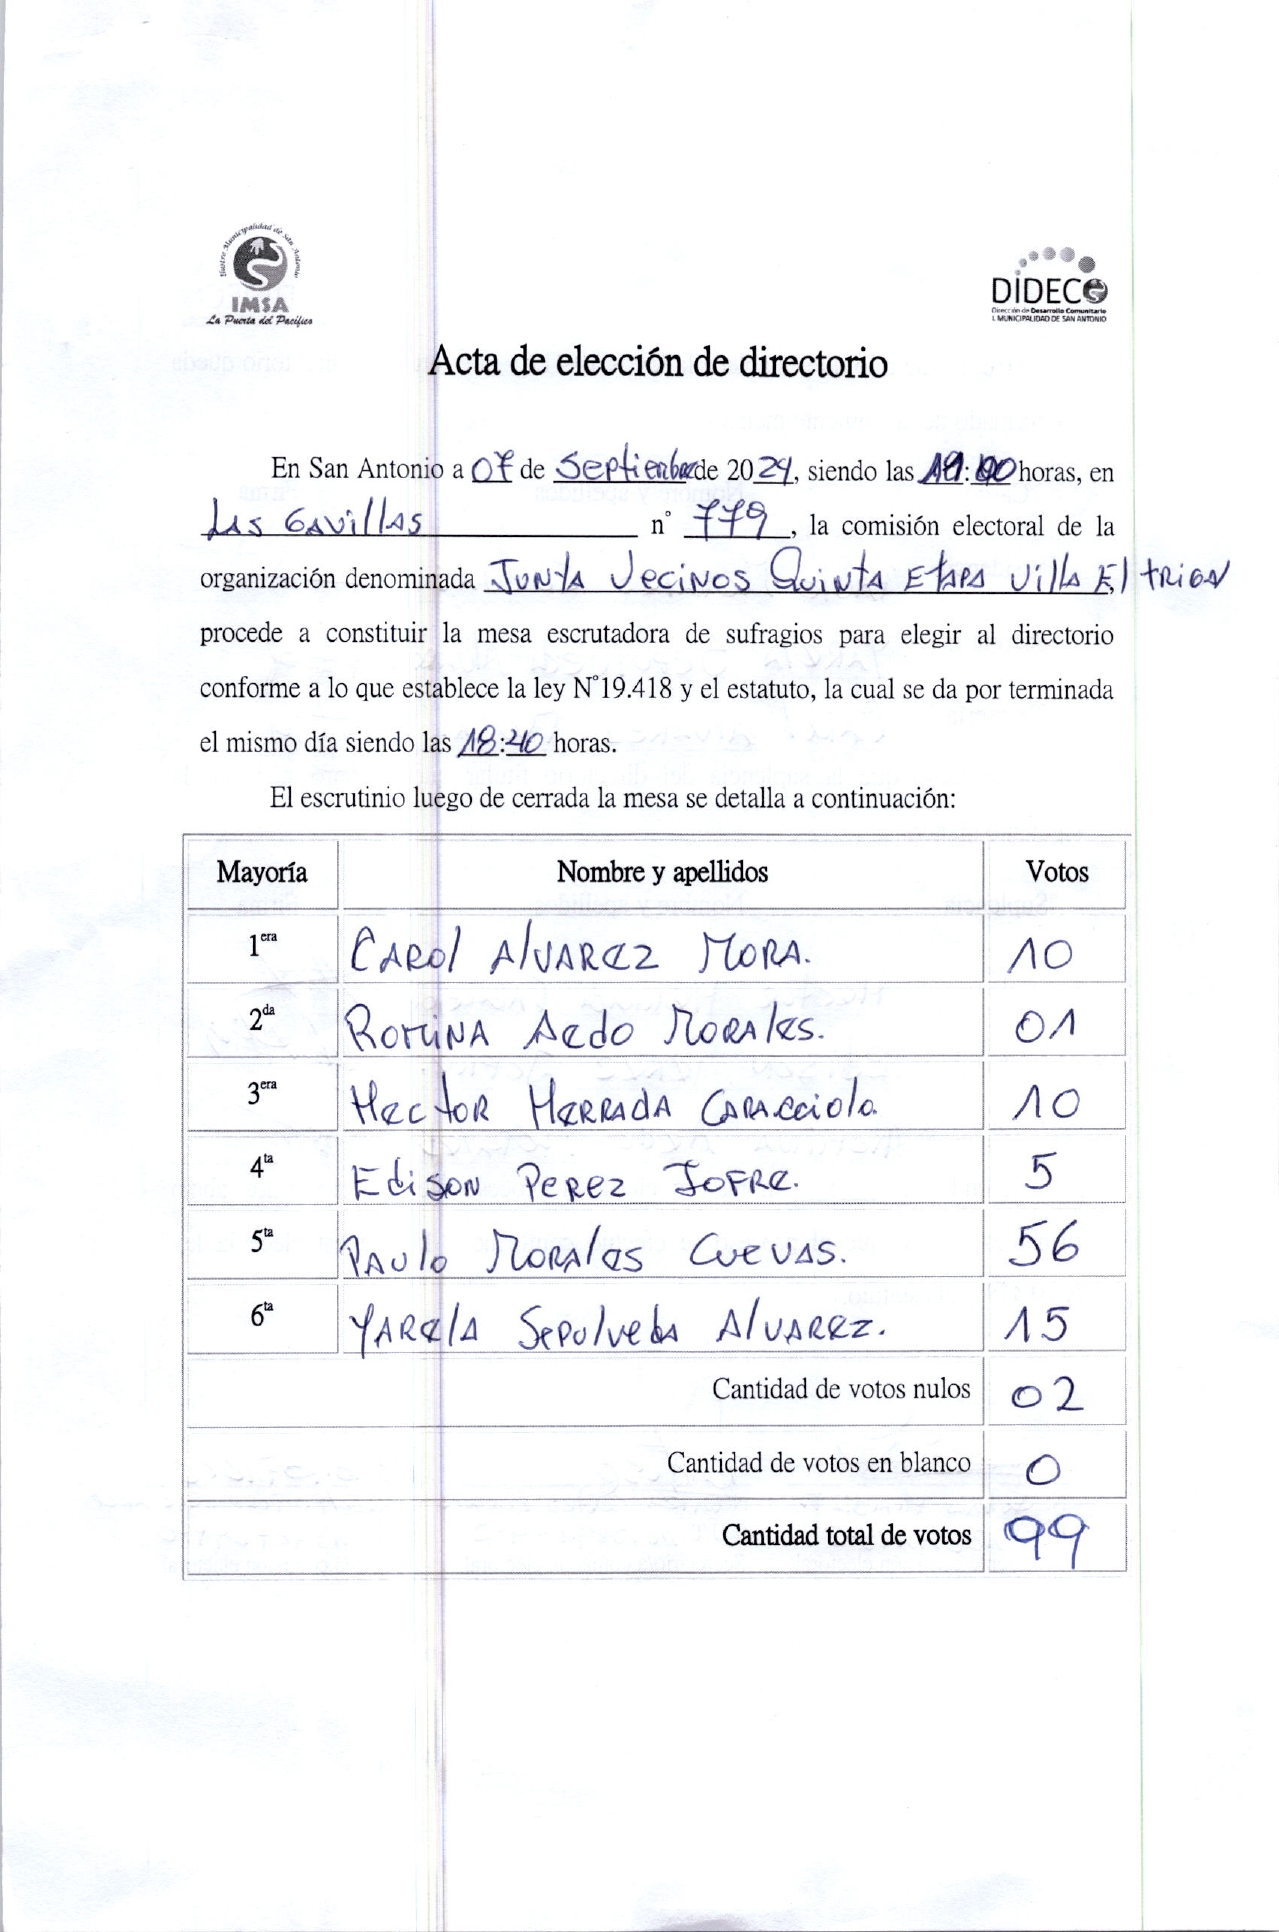 Ilustre Municipalidad de San Antonio
IMSA
La Puerta del Pacífico
DIDECO
Dirección de Desarrollo Comunitario
I. MUNICIPALIDAD DE SAN ANTONIO
Acta de elección de directorio
En San Antonio a 07 de Septiembre de 2024, siendo las : 00 horas, en
LAS GAVillAS n° 779, la comisión electoral de la
organización denominada JUNTA VeciNOS QuiNTA EtAPA VillA El tRIGAl,
procede a constituir la mesa escrutadora de sufragios para elegir al directorio
conforme a lo que establece la ley N°19.418 y el estatuto, la cual se da por terminada
el mismo día siendo las 18:40 horas.
El escrutinio luego de cerrada la mesa se detalla a continuación:
Mayoría Nombre y apellidos Votos
1era CAROl AlVAREZ MORA. 10
2da ROMiNA AEdO MORAlES. 01
3era HECtOR HERRADA CARACCiOlo. 10
4ta EdiSON PEREZ JOFRE. 5
5ta PAUlO MORAlES CUEVAS. 56
6ta YARElA SEPUlVEDA AlVAREZ. 15
Cantidad de votos nulos 02
Cantidad de votos en blanco 0
Cantidad total de votos 99